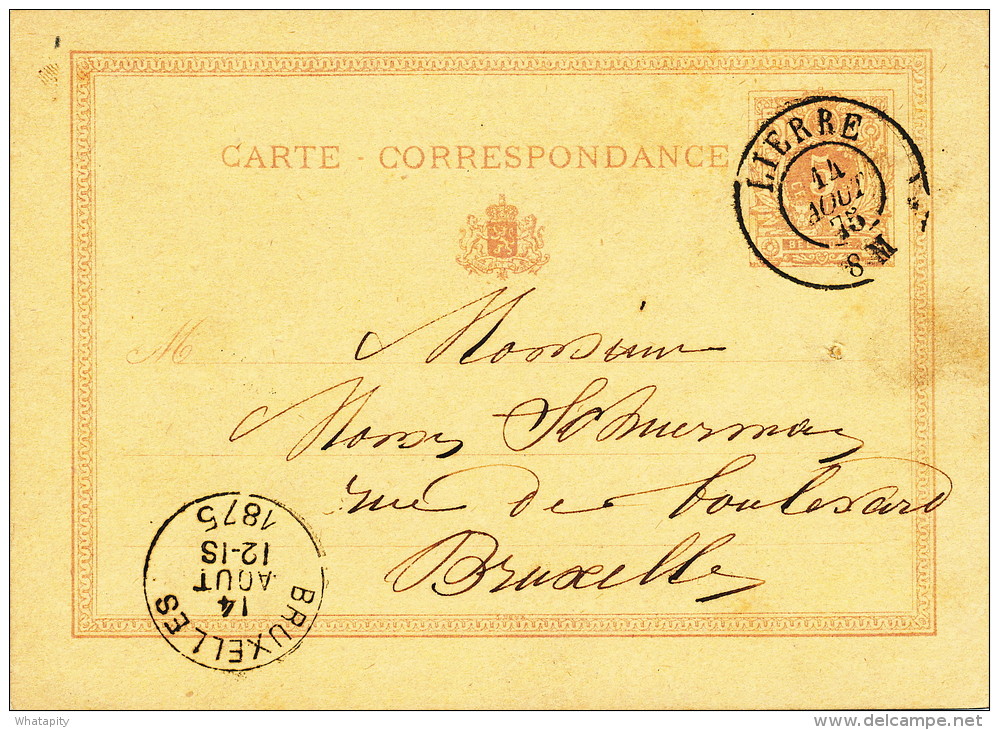 CARTE - CORRESPONDANCE
LIERRE
14
AOUT
75
8 M
5
M
Monsieur
Schuermans
rue de boulevard
Bruxelles
BRUXELLES
14
AOUT
12-1S
1875
Whatapity
delcampe.net